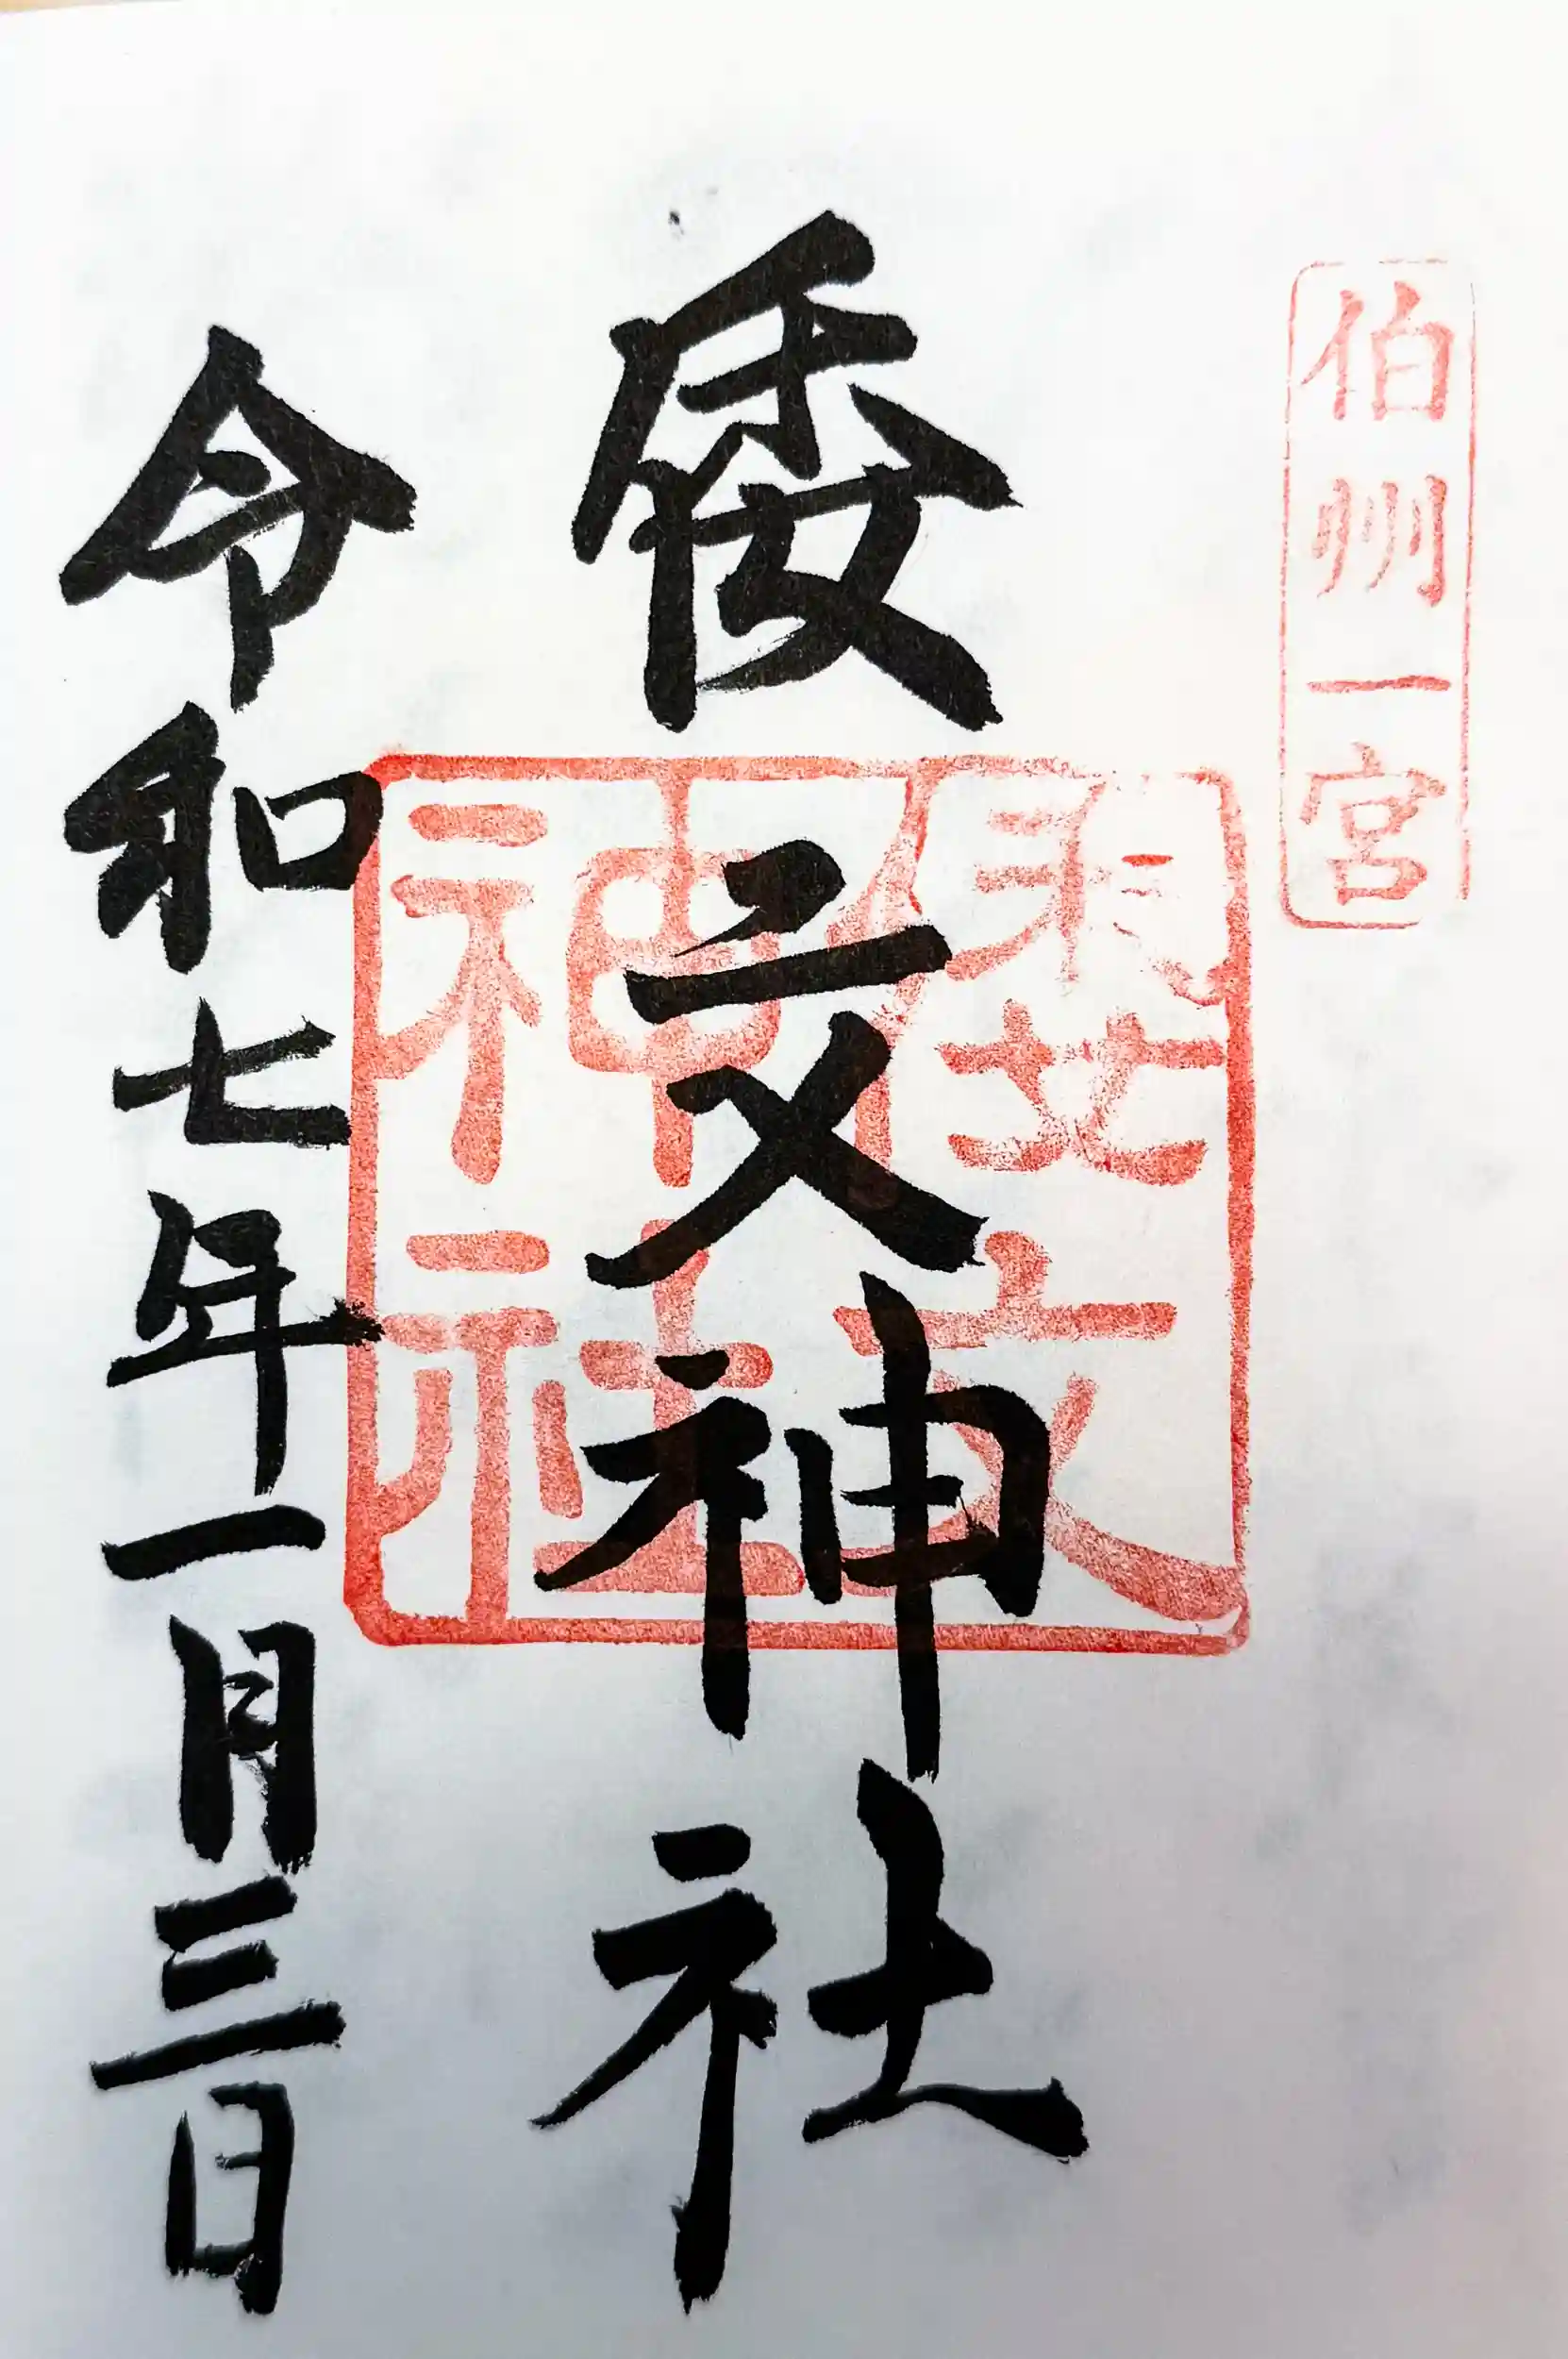 伯州一宮
倭文神社
倭文神社
令和七年一月三日